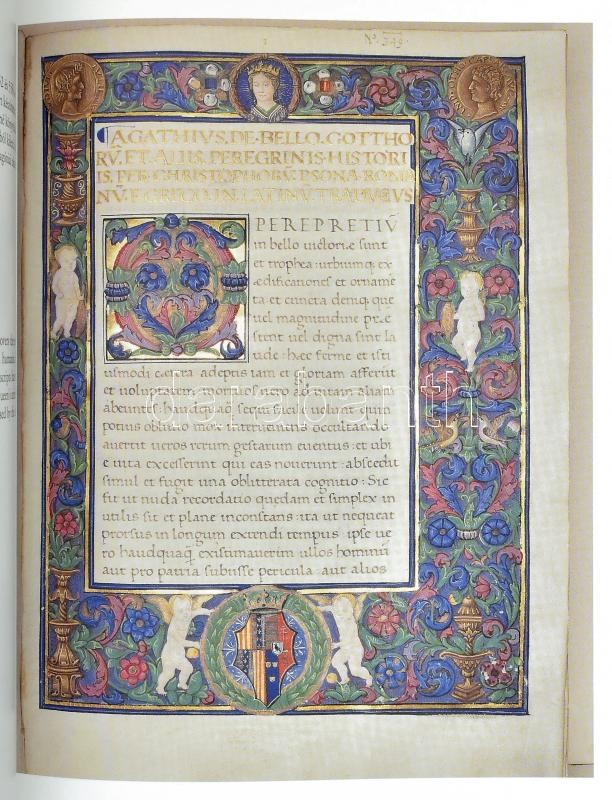 No. 349
AGATHIVS, DE·BELLO·GOTTHO
RV̄·ET·ALIIS·PEREGRINIS·HISTORI
IS·PER·CHRISTOPHORV̄·PSONA·ROMA
NV̄·E GRECO·IN·LATINV̄·TRADVCTVS
OPERE PRETIV̄
in bello uictoriæ sunt
et trophea: urbiumq; ex
ædificationes et orname
ta et cuncta demq; que
uel magnitudine præ
sent uel digna sint la
ude: hæc ferme et isti
usmodi cetera adeptis iam et gloriam afferūt
et voluptatem: mortuos uero ad uitam aliam
abeuntis: haudquaq̄ sequi facile uolunt quin
potius obliuio mox interueniens occultando
auertit ueros rerum gestarum euentus: et ubi
e uita excesserint qui eas nouerunt: abscedit
simul et fugit una oblitterata cognitio: Sic
fit ut nuda recordatio quedam et simplex in
utilis sit et plane inconstans: ita ut nequeat
prorsus in longum extendi tempus ipse ue
ro haudquaq̄ existimauerim ullos hominū
aut pro patria subiisse pericula: aut alios
darabanth